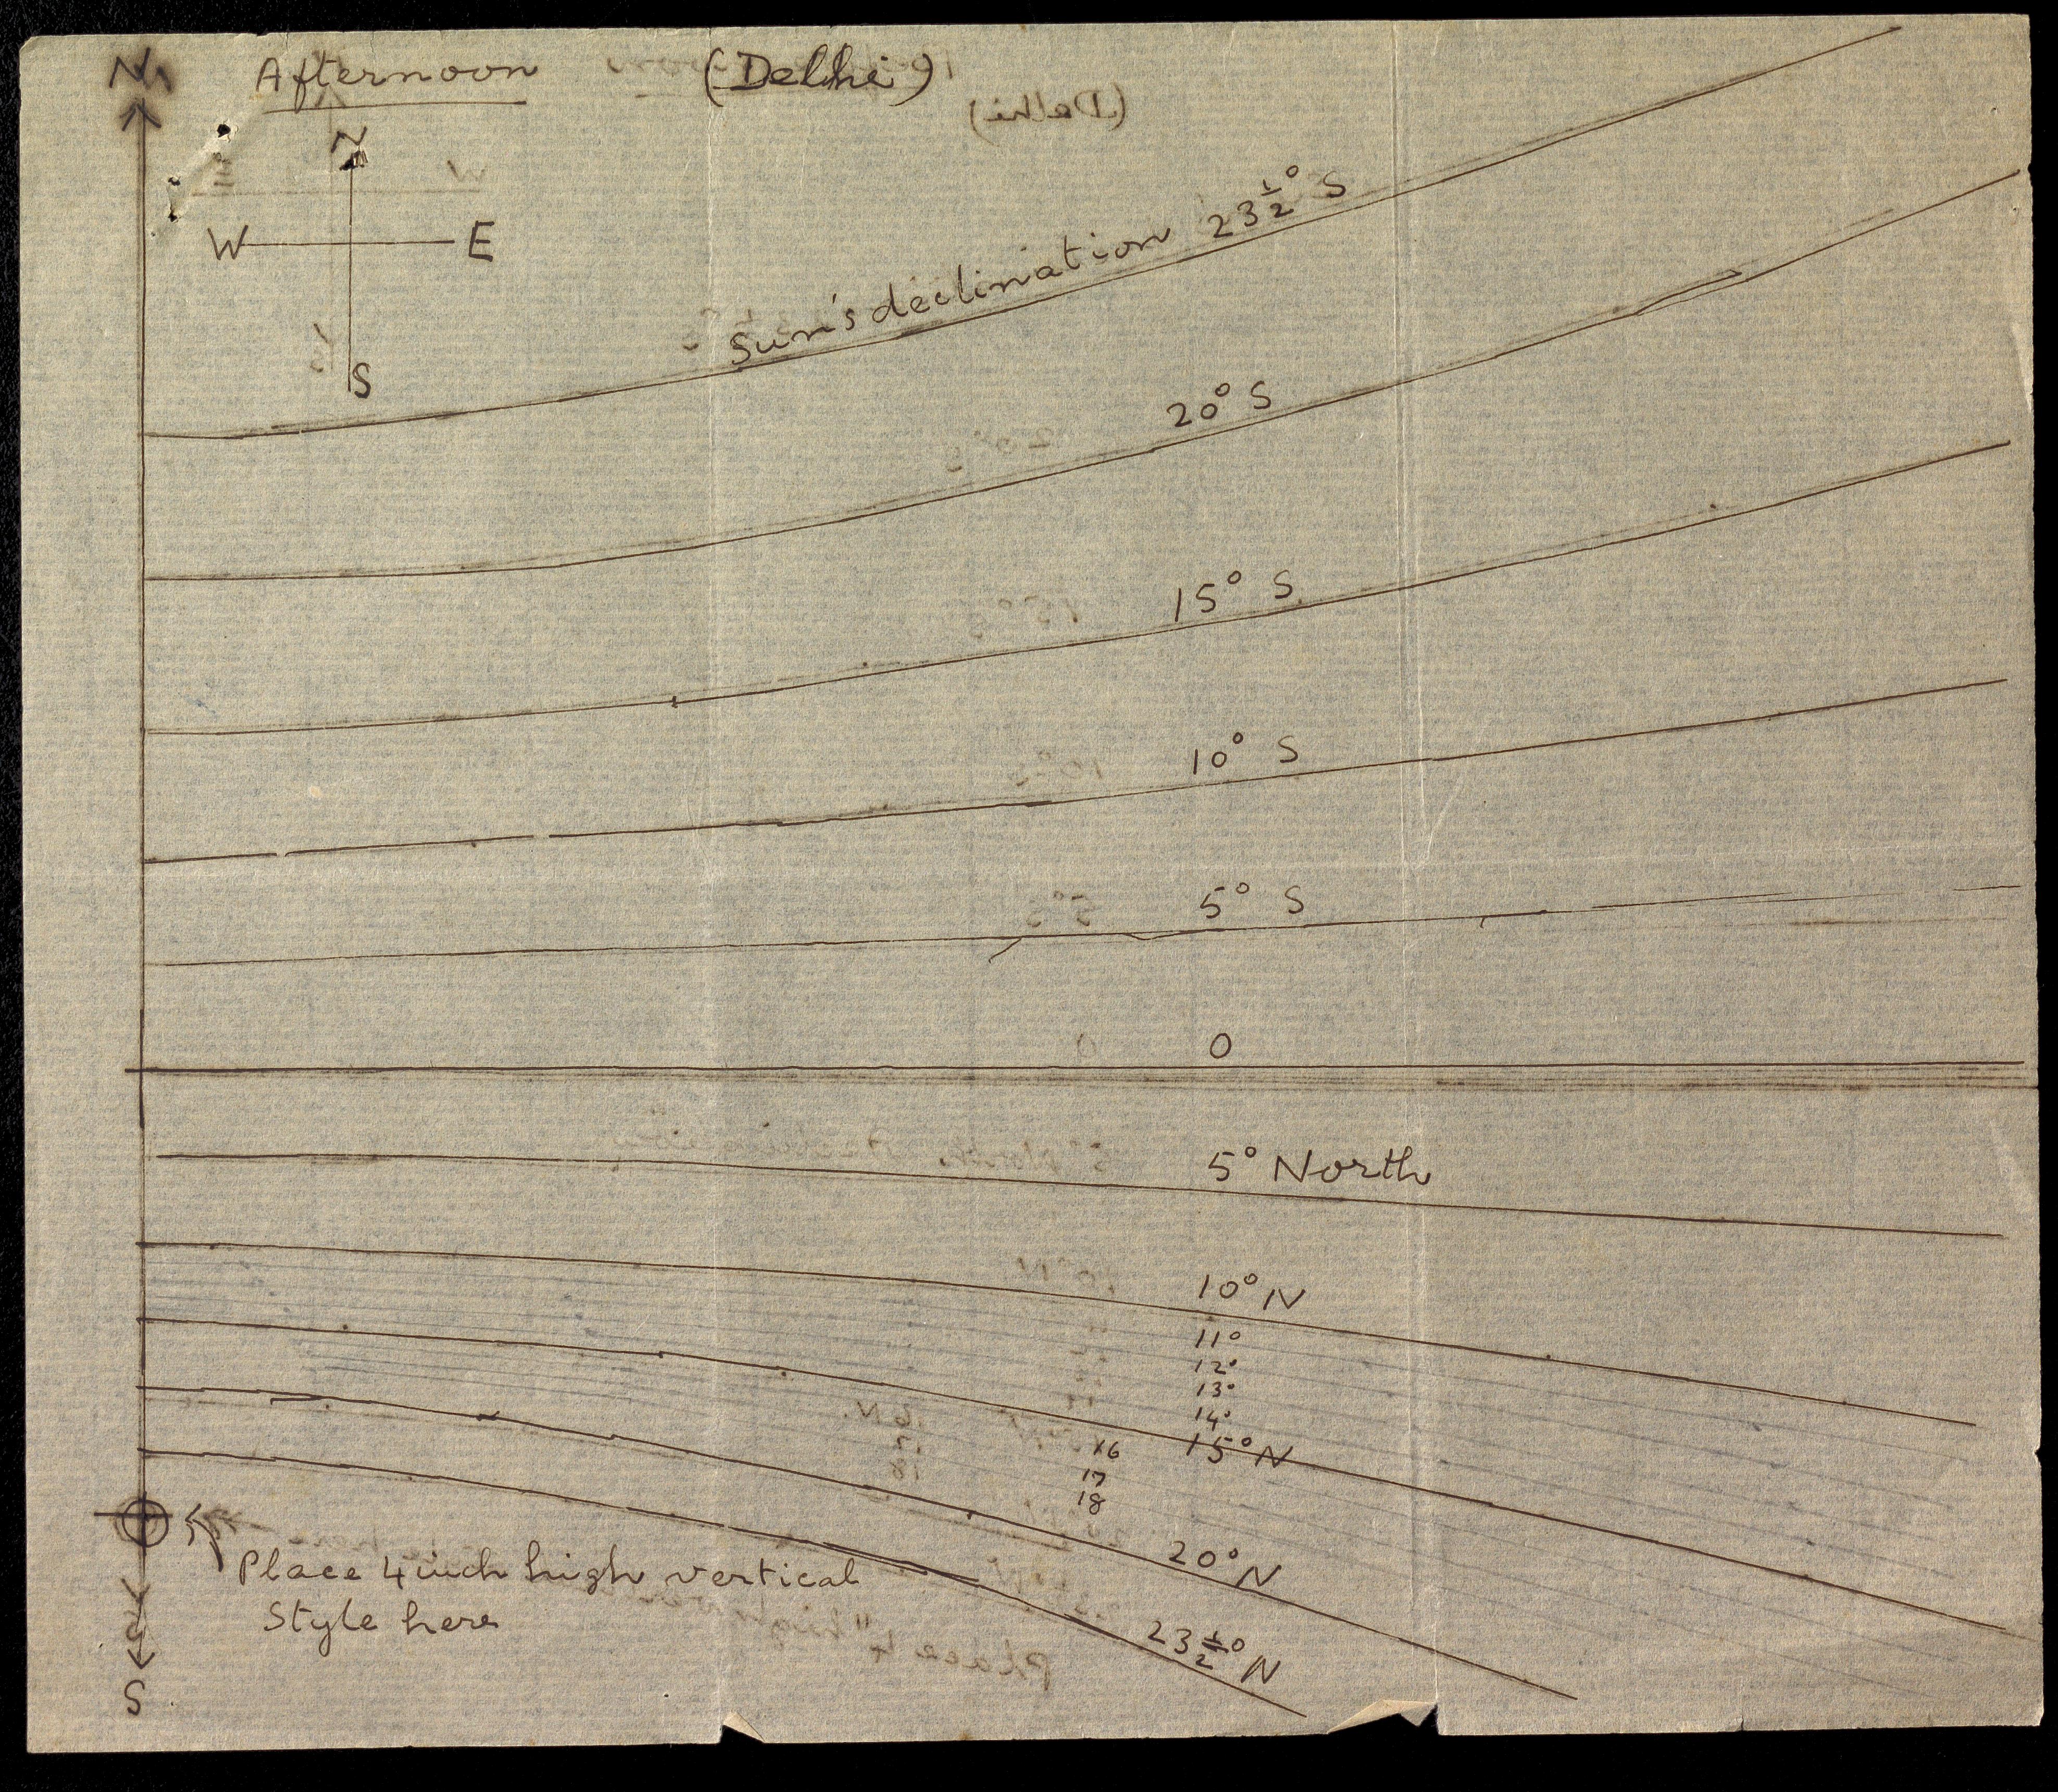 N
Afternoon (Delhi)
N
W E
S
Sun's declination 23½° S
20° S
15° S
10° S
5° S
0
5° North
10° N
11°
12°
13°
14°
15° N
16
17
18
20° N
23½° N
Place 4 inch high vertical
Style here
S